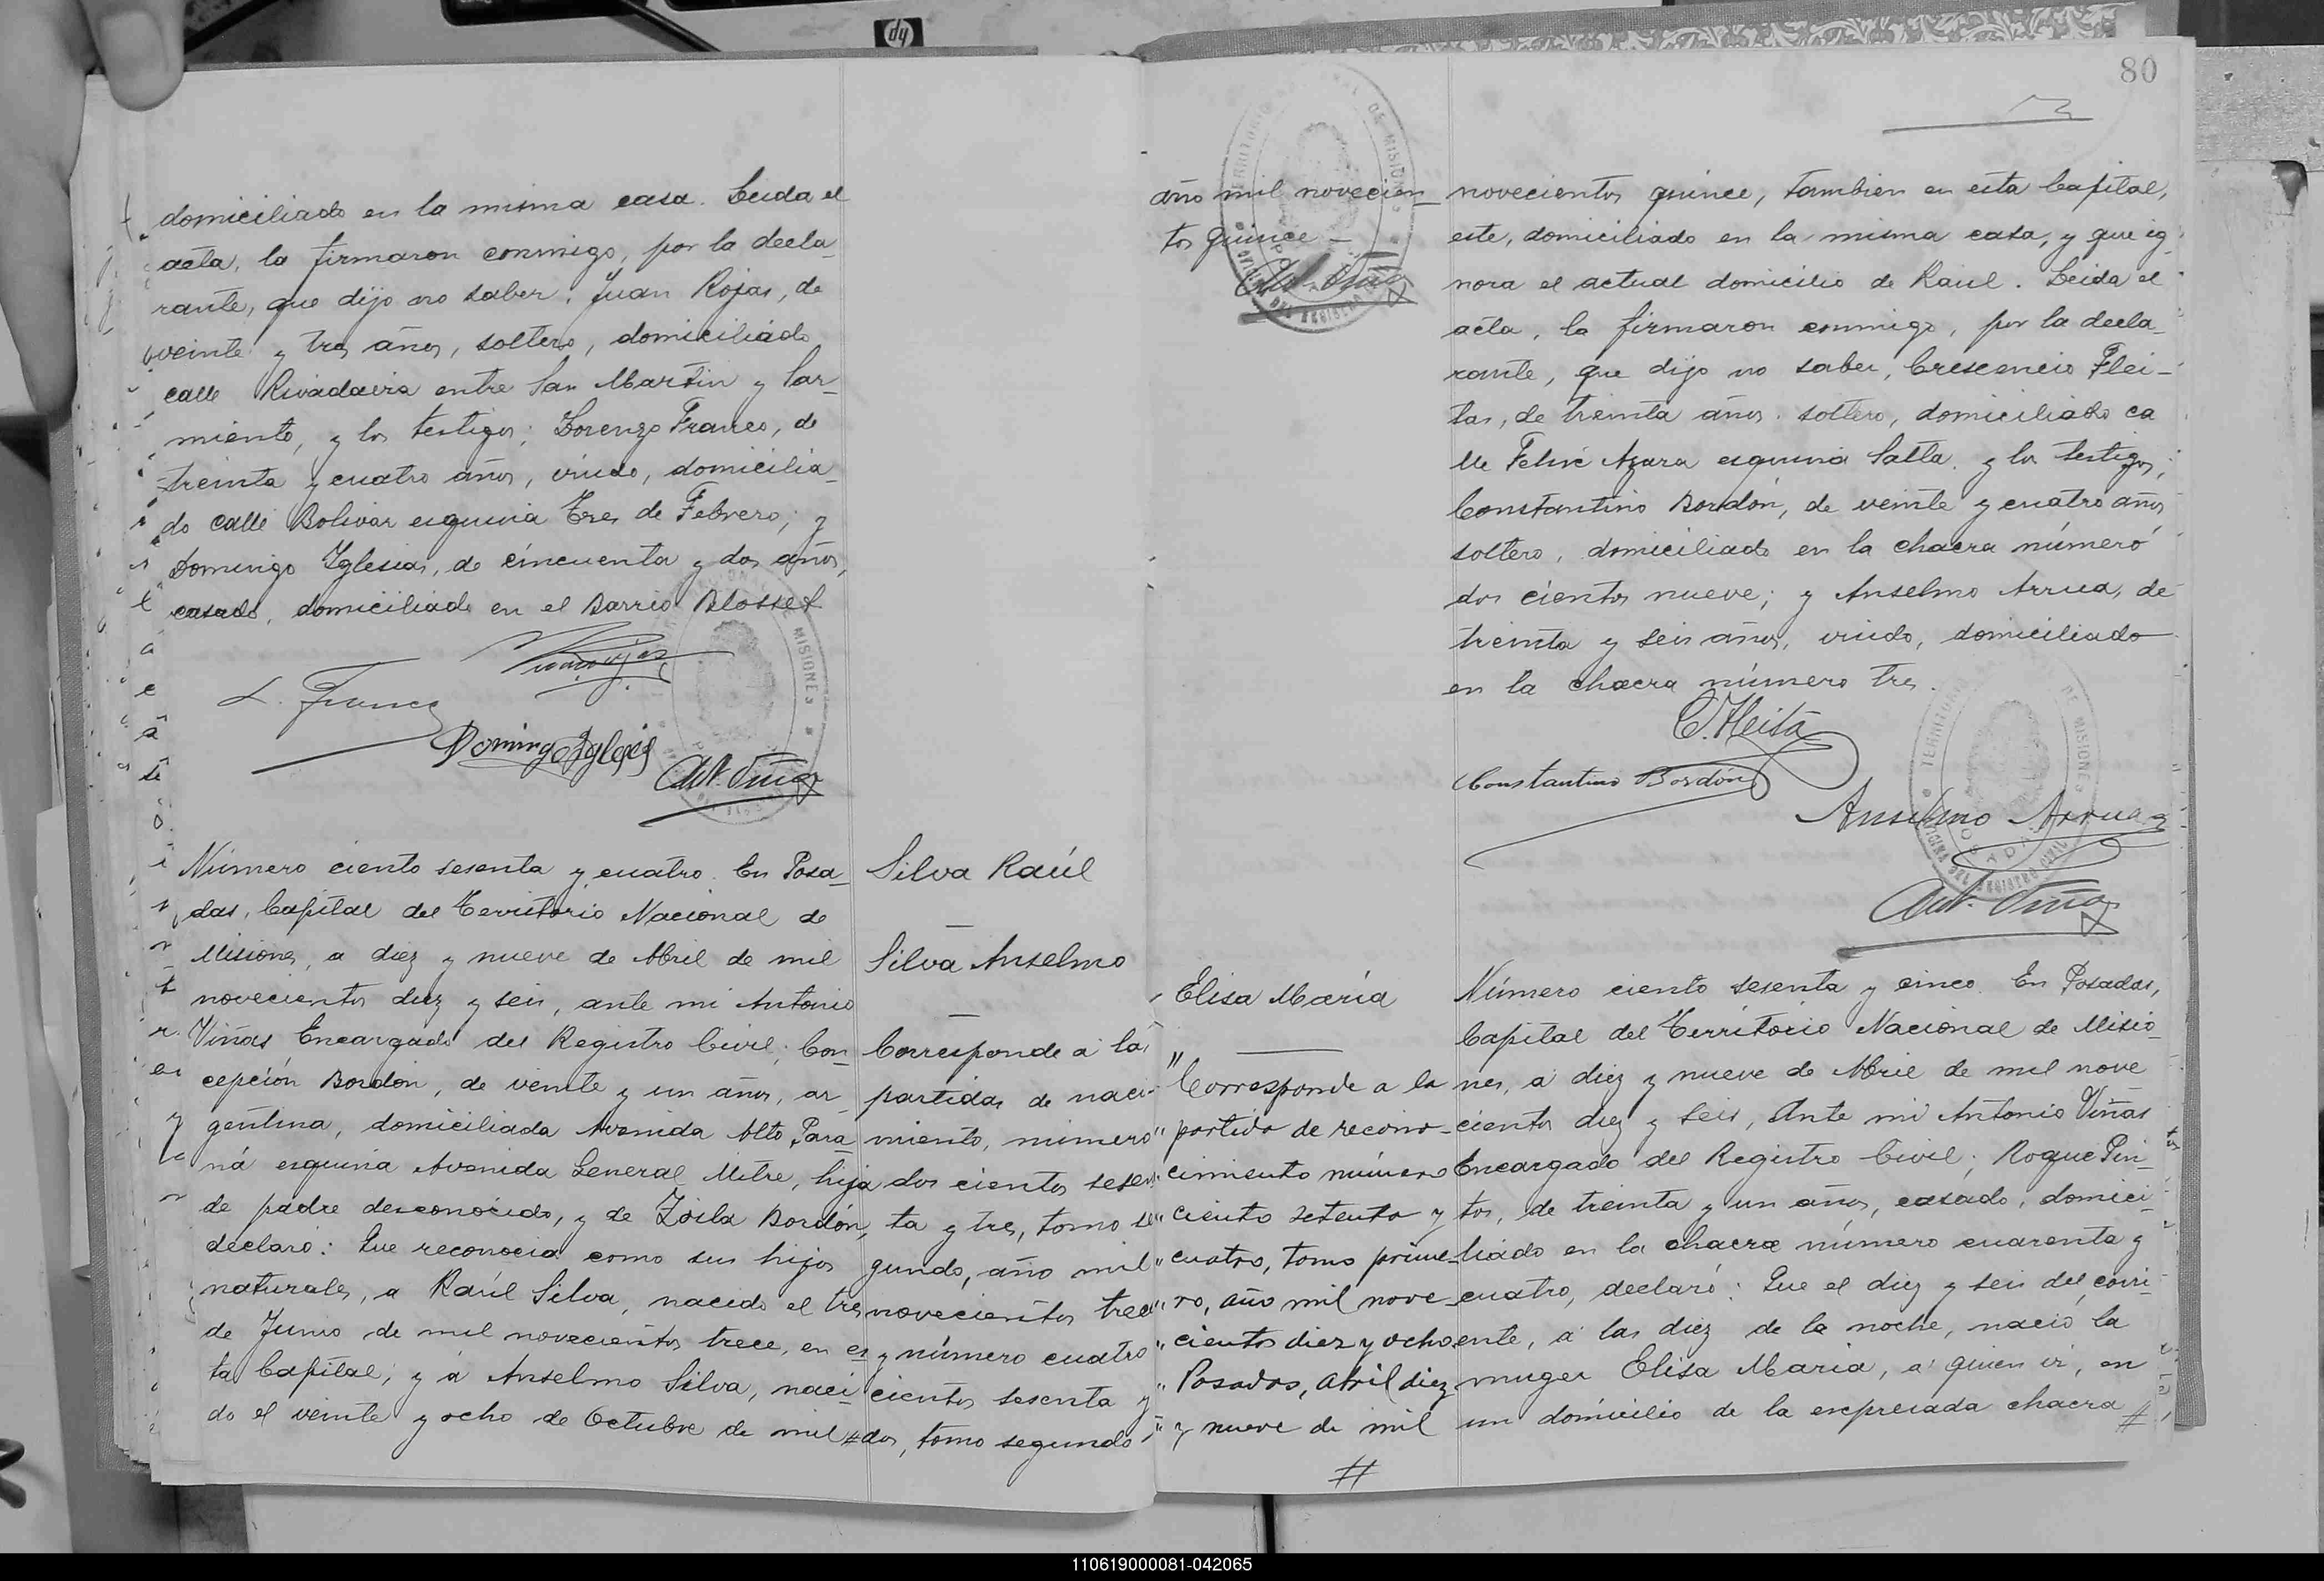 domiciliado en la misma casa. Leida el
acta, la firmaron conmigo, por la decla-
rante, que dijo no saber, Juan Rojas, de
veinte y tres años, soltero, domiciliado
calle Rivadavia entre San Martin y Sar-
miento, y los testigos; Lorenzo Franco, de
treinta y cuatro años, viudo, domicilia-
do calle Bolivar esquina Tres de Febrero; y
Domingo Iglesias, de cincuenta y dos años,
casado, domiciliado en el Barrio Blosset
L. Franco
Domingo Iglesias
Ant. Viñas
Número ciento sesenta y cuatro. En Posa-
das, Capital del Territorio Nacional de
Misiones, a diez y nueve de Abril de mil
novecientos diez y seis, ante mi Antonio
Viñas Encargado del Registro Civil; Con-
cepción Bordón, de veinte y un años, ar-
gentina, domiciliada Avenida Alto Para-
ná esquina Avenida General Mitre, hija
de padre desconocido, y de Zoila Bordón,
declaró: Que reconocia como sus hijos
naturales, a Raúl Silva, nacido el tres
de Junio de mil novecientos trece, en es-
ta Capital; y á Anselmo Silva, naci-
do el veinte y ocho de Octubre de mil #
Silva Raúl
Silva Anselmo
Corresponde a las
partidas de naci-
miento, número
dos cientos sesen-
ta y tres, tomo se-
gundo, año mil
novecientos trece
y número cuatro
cientos sesenta y
dos, tomo segundo
80
año mil novecien-
tos quince -
Ant. Viñas
novecientos quince, tambien en esta Capital,
este, domiciliado en la misma casa, y que ig-
nora el actual domicilio de Raul. Leida el
acta, la firmaron conmigo, por la decla-
rante, que dijo no saber, Crescencio Flei-
tas, de treinta años. soltero, domiciliado ca
lle Felix Azara esquina Salta, y los testigos,
Constantino Bordón, de veinte y cuatro años
soltero, domiciliado en la chacra número
dos cientos nueve; y Anselmo Arrua, de
treinta y seis años, viudo, domiciliado
en la chacra número tres.
C. Fleita
Constantino Bordón
Anselmo Arrua
Ant. Viñas
Elisa María
" Corresponde a la
" partida de recono-
cimiento número
" ciento setenta y
" cuatro, tomo prime-
" ro, año mil nove
" cientos diez y ocho
" Posadas, abril diez
" y nueve de mil
#
Número ciento sesenta y cinco. En Posadas,
Capital del Territorio Nacional de Misio-
nes, a diez y nueve de Abril de mil nove
cientos diez y seis, Ante mi Antonio Viñas
Encargado del Registro Civil; Roque Pin-
tos, de treinta y un años, casado, domici-
liado en la chacra número cuarenta y
cuatro, declaró: Que el diez y seis del corri-
ente, a las diez de la noche, nació la
muger Elisa Maria, a quien vi, en
un domicilio de la expresada chacra #
110619000081-042065